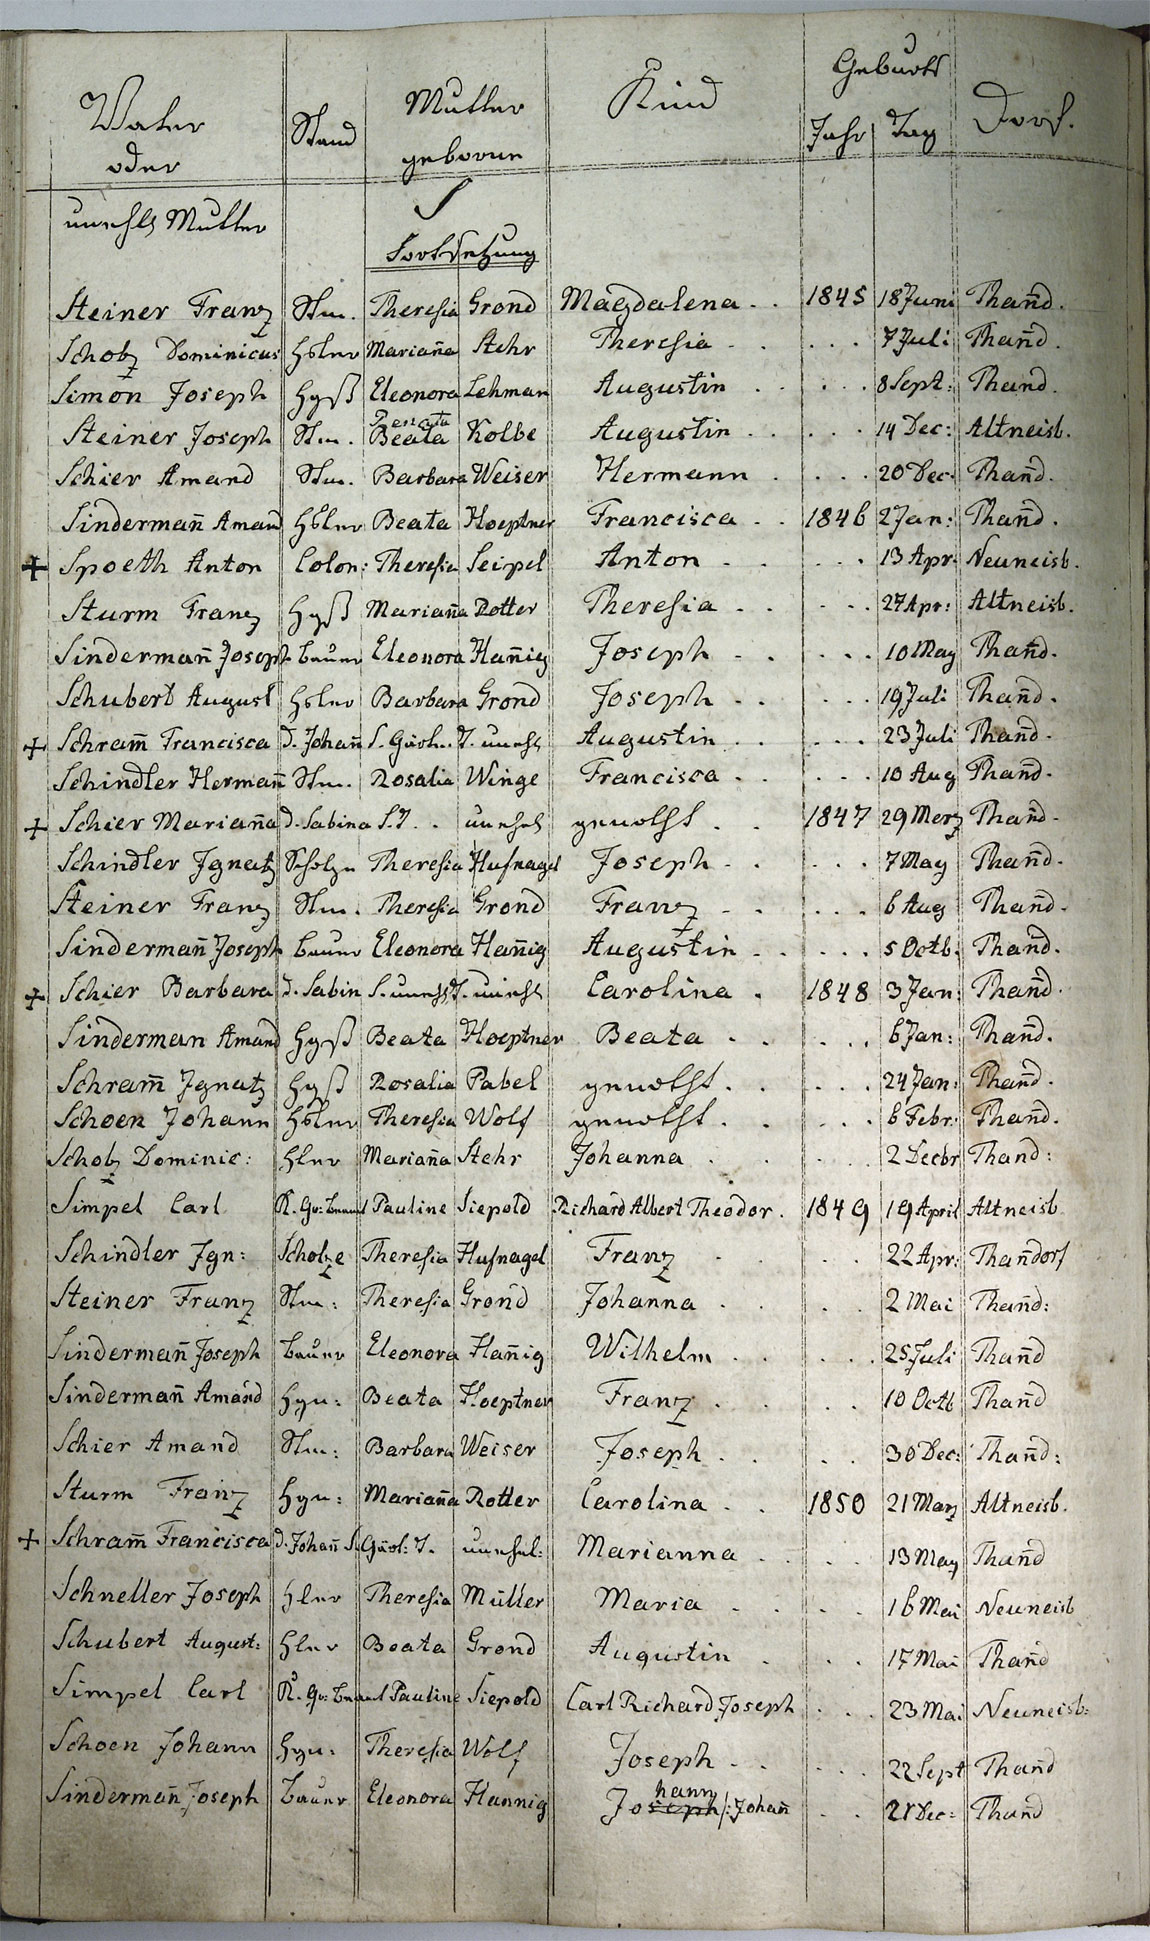 Vater oder unehl. Mutter | Stand | Mutter geborne | Kind | Geburts Jahr | Tag | Dorf.
S
Fortsetzung
Steiner Franz Stm. Theresia Grond Magdalena . . 1845 18 Juni Thañd.
Scholz Dominicus Hslr Mariaña Stehr Theresia . . . . . 7 Juli Thañd.
Simon Joseph Hgß Eleonora Lehman Augustin . . . . . 8 Sept: Thand.
Renata
Steiner Joseph Stm. Beata Kolbe Augustin . . . . . 14 Dec: Altneisb.
Schier Amand Stm. Barbara Weiser Hermann . . . . 20 Dec. Thañd.
Sindermañ Amand Hslr Beata Hoeptner Francisca . . 1846 2 Jan: Thañd.
+ Spoeth Anton Colon: Theresia Seipel Anton . . . . . 13 Apr. Neuneisb.
Sturm Franz Hgß Mariaña Rotter Theresia . . . . . 27 Apr: Altneisb.
Sindermañ Joseph bauer Eleonora Hañig Joseph . . . . . 10 May Thañd.
Schubert August Hslr Barbara Grond Joseph . . . . . 19 Juli Thañd.
+ Schram̃ Francisca d. Johañ S. Gärl. T. unehl Augustin . . . . . 23 Juli Thañd.
Schindler Hermañ Stm. Rosalia Winge Francisca . . . . . 10 Aug Thañd.
+ Schier Mariaña d. Sabina S. T. . unehel genotht . . 1847 29 Merz Thañd.
Schindler Jgnatz Scholze Theresia Hufnagel Joseph . . . . . 7 May Thañd.
Steiner Franz Stm. Theresia Grond Franz . . . . . 6 Aug Thañd.
Sindermañ Joseph bauer Eleonora Hañig Augustin . . . . . 5 Octb. Thand.
+ Schier Barbara d. Sabin S. unehl T. unehl Carolina . 1848 3 Jan: Thañd.
Sinderman Amand Hgß Beata Hoeptner Beata . . . . . 6 Jan: Thañd.
Schram̃ Jgnatz Hgß Rosalia Pabel genotht . . . . . 24 Jan: Thañd.
Schoen Johann Hslr Theresia Wolf genotht . . . . . 6 Febr: Thañd.
Scholz Dominic: Hlr Mariaña Stehr Johanna . . . . . 2 Decbr Thand:
Simpel Carl K. Gr: beamt Pauline Siepold Richard Albert Theodor . 1849 19 April Altneisb
Schindler Jgn: Scholze Theresia Hufnagel Franz . . . 22 Apr: Thañdorf
Steiner Franz Stm: Theresia Grond Johanna . . . . 2 Mai Thañd:
Sindermañ Joseph bauer Eleonora Hañig Wilhelm . . . . . 25 Juli Thañd
Sindermañ Amand Hgn: Beata Hoeptner Franz . . . . 10 Octb Thañd
Schier Amand Stm: Barbara Weiser Joseph . . . . 30 Dec: Thañd:
Sturm Franz Hgn: Mariaña Rotter Carolina . . 1850 21 Marz Altneisb.
+ Schram̃ Francisca d. Johañ S. Gärl: T. unehel: Marianna . . . . 13 May Thañd
Schneller Joseph Hlr Theresia Müller Maria . . . . 16 Mai Neuneisb
Schubert August: Hlr Beata Grond Augustin . . . 17 Mai Thañd
Simpel Carl K. Gr: beamt Pauline Siepold Carl Richard Joseph . . . 23 Mai Neuneisb:
Schoen Johann Hgn: Theresia Wolf Joseph . . . . . 22 Sept Thañd
hann
Sindermañ Joseph bauer Eleonora Hannig Joseph /: Johañ . . 21 Dec: Thañd